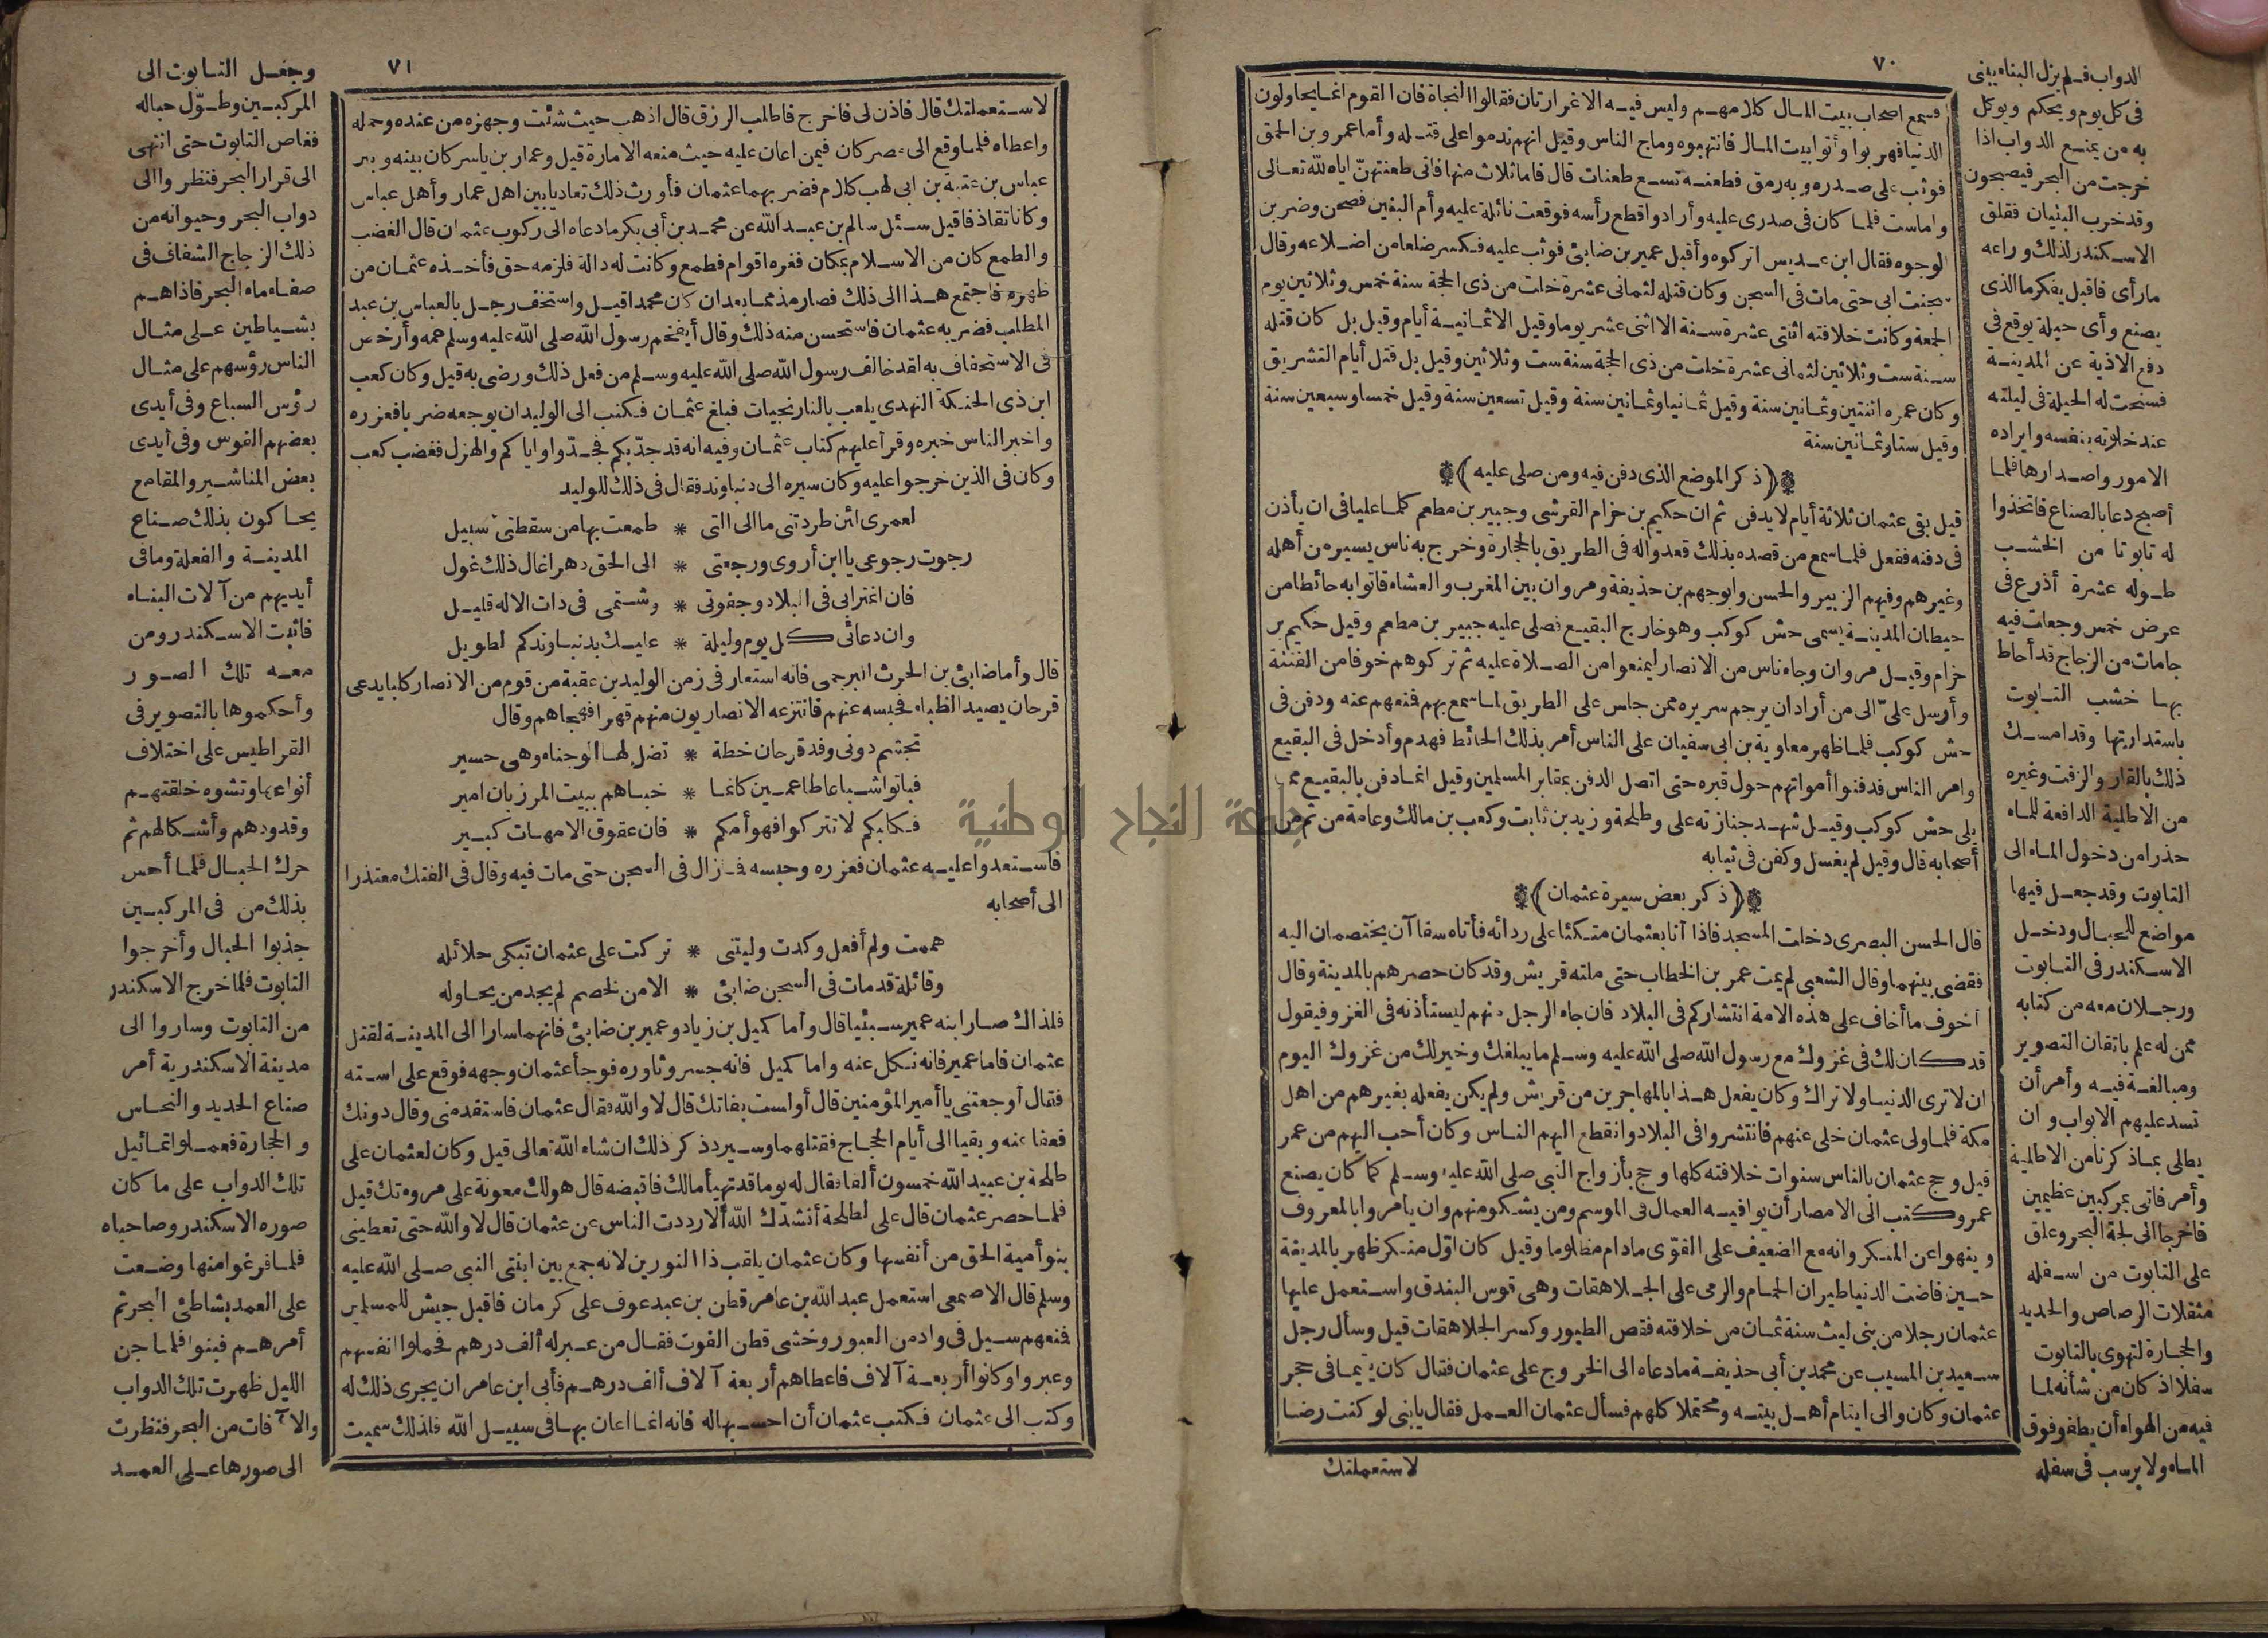 ٧٠
فسمع اصحاب بيت المال كلامهم وليس فيه الاغرارتان فقالوا النجاة فان القوم انما يحاولون
الدنيا فهربوا وأتوا بيت المال فانتهبوه وماج الناس وقيل انهم ندموا على قتله وأما عمرو بن الحمق
فوثب على صدره وبه رمق فطعنه تسع طعنات قال فاما ثلاث منها فانى طعنتهن اياه لله تعالى
واماست فلما كان فى صدرى عليه وأرادوا قطع رأسه فوقعت نائلة عليه وأم البنين فصحن وضربن
الوجوه فقال ابن عديس اتركوه وأقبل عمير بن ضابئ فوثب عليه فكسر ضلعا من اضلاعه وقال
سجنت ابى حتى مات فى السجن وكان قتله لثمانى عشرة خلت من ذى الحجة سنة خمس وثلاثين يوم
الجمعة وكانت خلافته اثنتى عشرة سنة الا اثنى عشر يوما وقيل الا ثمانية أيام وقيل بل كان قتله
سنة ست وثلاثين لثمانى عشرة خلت من ذى الحجة سنة ست وثلاثين وقيل بل قتل أيام التشريق
وكان عمره اثنتين وثمانين سنة وقيل ثمانيا وثمانين سنة وقيل تسعين سنة وقيل خمسا وسبعين سنة
وقيل ستا وثمانين سنة
﴿ذكر الموضع الذى دفن فيه ومن صلى عليه﴾
قيل بقى عثمان ثلاثة أيام لا يدفن ثم ان حكيم بن حزام القرشى وجبير بن مطعم كلما عليا فى ان يأذن
فى دفنه ففعل فلما سمع من قصده بذلك قعدوا له فى الطريق بالحجارة وخرج به ناس يسير من أهله
وغيرهم وفيهم الزبير والحسن وابوجهم بن حذيفة ومروان بين المغرب والعشاء فاتوا به حائطا من
حيطان المدينة يسمى حش كوكب وهو خارج البقيع فصلى عليه جبير بن مطعم وقيل حكيم بن
حزام وقيل مروان وجاء ناس من الانصار ليمنعوا من الصلاة عليه ثم تركوهم خوفا من الفتنة
وأرسل علىّ الى من أراد ان يرجم سريره ممن جلس على الطريق لما سمع بهم فمنعهم عنه ودفن فى
حش كوكب فلما ظهر معاوية بن ابى سفيان على الناس أمر بذلك الحائط فهدم وأدخل فى البقيع
وامر الناس فدفنوا أمواتهم حول قبره حتى اتصل الدفن بمقابر المسلمين وقيل انما دفن بالبقيع مما
يلى حش كوكب وقيل شهد جنازته على وطلحة وزيد بن ثابت وكعب بن مالك وعامة من ثم من
أصحابه قال وقيل لم يغسل وكفن فى ثيابه
﴿ذكر بعض سيرة عثمان﴾
قال الحسن البصرى دخلت المسجد فاذا أنا بعثمان متكئا على ردائه فأتاه سقاآن يختصمان اليه
فقضى بينهما وقال الشعبى لم يمت عمر بن الخطاب حتى ملته قريش وقد كان حصرهم بالمدينة وقال
أخوف ما أخاف على هذه الامة انتشاركم فى البلاد فان جاء الرجل منهم ليستأذنه فى الغزو فيقول
قد كان لك فى غزوك مع رسول الله صلى الله عليه وسلم ما يبلغك وخير لك من غزوك اليوم
ان لا ترى الدنيا ولا تراك وكان يفعل هذا بالمهاجرين من قريش ولم يكن يفعله بغيرهم من اهل
مكة فلما ولى عثمان خلى عنهم فانتشروا فى البلاد وانقطع اليهم الناس وكان أحب اليهم من عمر
قيل وحج عثمان بالناس سنوات خلافته كلها وحج بأزواج النبى صلى الله عليه وسلم كما كان يصنع
عمر وكتب الى الامصار أن يوافيه العمال فى الموسم ومن يشكو منهم وان يأمروا بالمعروف
وينهوا عن المنكر وانه مع الضعيف على القوى مادام مظلوما وقيل كان اوّل منكر ظهر بالمدينة
حين فاضت الدنيا طيران الحمام والرمى على الجلاهقات وهى قوس البندق واستعمل عليها
عثمان رجلا من بنى ليث سنة ثمان من خلافته فقص الطيور وكسر الجلاهقات قيل وسأل رجل
سعيد بن المسيب عن محمد بن أبى حذيفة مادعاه الى الخروج على عثمان فقال كان يتيما فى حجر
عثمان وكان والى ايتام أهل بيته ومحتملا كلهم فسأل عثمان العمل فقال يا بنى لو كنت رضا
لاستعملتك
الدواب فلم يزل البناء يبنى
فى كل يوم ويحكم ويوكل
به من يمنع الدواب اذا
خرجت من البحر فيصبحون
وقد خرب البنيان فقلق
الاسكندر لذلك وراعه
مارأى فاقبل يفكر ما الذى
يصنع وأى حيلة يوقع فى
دفع الاذية عن المدينة
فسنحت له الحيلة فى ليلته
عند خلوته بنفسه وايراده
الامور واصدارها فلما
أصبح دعا بالصناع فاتخذوا
له تابوتا من الخشب
طوله عشرة أذرع فى
عرض خمس وجعلت فيه
جامات من الزجاج قد أحاط
بها خشب التابوت
باستدارتها وقد امسك
ذلك بالقار والزفت وغيره
من الاطلية الدافعة للماء
حذرا من دخول الماء الى
التابوت وقد جعل فيها
مواضع للحبال ودخل
الاسكندر فى التابوت
ورجلان معه من كتابه
ممن له علم باتقان التصوير
ومبالغة فيه وأمر أن
تسد عليهم الابواب وان
يطلى بما ذكرنا من الاطلية
وأمر فاتى بمركبين عظيمين
فاخرجا الى لجة البحر وعلق
على التابوت من اسفله
مثقلات الرصاص والحديد
والحجارة لتهوى بالتابوت
سفلا اذ كان من شأنه لما
فيه من الهواء أن يطفو فوق
الماء ولا يرسب فى سفله
٧١
لاستعملتك قال فاذن لى فاخرج فاطلب الرزق قال اذهب حيث شئت وجهزه من عنده وحمله
واعطاه فلما وقع الى مصر كان فيمن اعان عليه حيث منعه الامارة قيل وعمار بن ياسر كان بينه وبين
عباس بن عتبة بن ابى لهب كلام فضربهما عثمان فأورث ذلك تعاديا بين اهل عمار وأهل عباس
وكانا تقاذفا قيل سئل سالم بن عبد الله عن محمد بن أبى بكر مادعاه الى ركوب عثمان قال الغضب
والطمع كان من الاسلام بمكان فغره اقوام فطمع وكانت له دالة فلزمه حق فأخذه عثمان من
ظهره فاجتمع هذا الى ذلك فصار مذمما بعد ان كان محمدا قيل واستخف رجل بالعباس بن عبد
المطلب فضربه عثمان فاستحسن منه ذلك وقال أيفخم رسول الله صلى الله عليه وسلم عمه وأرخص
فى الاستخفاف به لقد خالف رسول الله صلى الله عليه وسلم من فعل ذلك ورضى به قيل وكان كعب
ابن ذى الحبكة النهدى يلعب بالنارنجيات فبلغ عثمان فكتب الى الوليد ان يوجعه ضربا فعزره
واخبر الناس خبره وقرأ عليهم كتاب عثمان وفيه انه قد جدّ بكم فجدّوا واياكم والهزل فغضب كعب
وكان فى الذين خرجوا عليه وكان سيره الى دنباوند فقال فى ذلك للوليد
لعمرى ائن طردتنى ما الى التى * طمعت بها من سقطتى سبيل
رجوت رجوعى يا ابن أروى ورجعتى * الى الحق دهرا غال ذلك غول
فان اغترابى فى البلاد وجفوتى * وشتمى فى ذات الاله قليل
وان دعائى كل يوم وليلة * عليك بدنباوندكم لطويل
قال وأما ضابئ بن الحرث البرجمى فانه استعار فى زمن الوليد بن عقبة من قوم من الانصار كلبا يدعى
قرحان يصيد الظباء فحبسه عنهم فانتزعه الانصاريون منهم قهرا فهجاهم وقال
تجشم دونى وفد قرحان خطة * تضل لها الوجناء وهى حسير
فباتوا شباعا طاعمين كانما * حباهم ببيت المرزبان امير
فكلبكم لا تتركوا فهو أمكم * فان عقوق الامهات كبير
فاستعدوا عليه عثمان فعزره وحبسه فما زال فى السجن حتى مات فيه وقال فى الفتك معتذرا
الى أصحابه
هممت ولم أفعل وكدت وليتنى * تركت على عثمان تبكى حلائله
وقائلة قدمات فى السجن ضابئ * الا من لخصم لم يجد من يحاوله
فلذلك صار ابنه عمير سبئيا قال وأما كميل بن زياد وعمير بن ضابئ فانهما سارا الى المدينة لقتل
عثمان فاما عمير فانه نكل عنه واما كميل فانه جسر وثاوره فوجأ عثمان وجهه فوقع على استه
فقال أوجعتنى يا أمير المؤمنين قال أولست بفاتك قال لا والله فقال عثمان فاستقد منى وقال دونك
فعفا عنه وبقيا الى أيام الحجاج فقتلهما وسيرد ذكر ذلك ان شاء الله تعالى قيل وكان لعثمان على
طلحة بن عبيد الله خمسون ألفا فقال له يوما قد تهيأ مالك فاقبضه قال هو لك معونة على مروءتك قيل
فلما حصر عثمان قال على لطلحة أنشدك الله ألا رددت الناس عن عثمان قال لا والله حتى تعطينى
بنو أمية الحق من أنفسها وكان عثمان يلقب ذا النورين لانه جمع بين ابنتى النبى صلى الله عليه
وسلم قال الاصمعى استعمل عبد الله بن عامر قطن بن عبد عوف على كرمان فاقبل جيش للمسلمين
فمنعهم سيل فى واد من العبور وخشى قطن الفوت فقال من عبر له ألف درهم فحملوا انفسهم
وعبروا وكانوا أربعة آلاف فاعطاهم أربعة آلاف ألف درهم فأبى ابن عامر ان يجرى ذلك له
وكتب الى عثمان فكتب عثمان أن احسبها له فانه انما اعان بها فى سبيل الله فلذلك سميت
وجعل التابوت الى
المركبين وطوّل حباله
فغاص التابوت حتى انتهى
الى قرار البحر فنظروا الى
دواب البحر وحيوانه من
ذلك الزجاج الشفاف فى
صفاء ماء البحر فاذا هم
بشياطين على مثال
الناس رؤسهم على مثال
رؤس السباع وفى أيدى
بعضهم الفوس وفى أيدى
بعض المناشير والمقامع
يحاكون بذلك صناع
المدينة والفعلة ومافى
أيديهم من آلات البناء
فاثبت الاسكندر ومن
معه تلك الصور
وأحكموها بالتصوير فى
القراطيس على اختلاف
أنواعها وتشوه خلقتهم
وقدودهم وأشكالهم ثم
حرك الحبال فلما أحس
بذلك من فى المركبين
جذبوا الحبال وأخرجوا
التابوت فلما خرج الاسكندر
من التابوت وساروا الى
مدينة الاسكندرية أمر
صناع الحديد والنحاس
والحجارة فعملوا تماثيل
تلك الدواب على ما كان
صوره الاسكندر وصاحباه
فلما فرغوا منها وضعت
على العمد بشاطئ البحر ثم
أمرهم فبنوا فلما جن
الليل ظهرت تلك الدواب
والآفات من البحر فنظرت
الى صورها على العمد
جامعة النجاح الوطنية